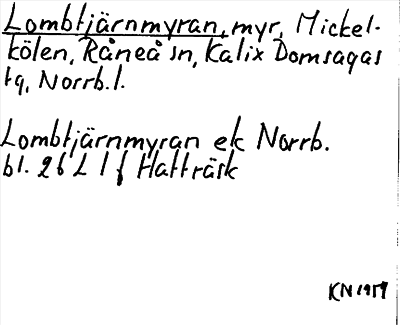 Lombtjärnmyran, myr, Mickel-
kölen, Råneå sn, Kalix Domsagas
tg, Norrb.l.
Lombtjärnmyran ek Norrb.
bl. 26 L 1 f Hatträsk
KN 1959